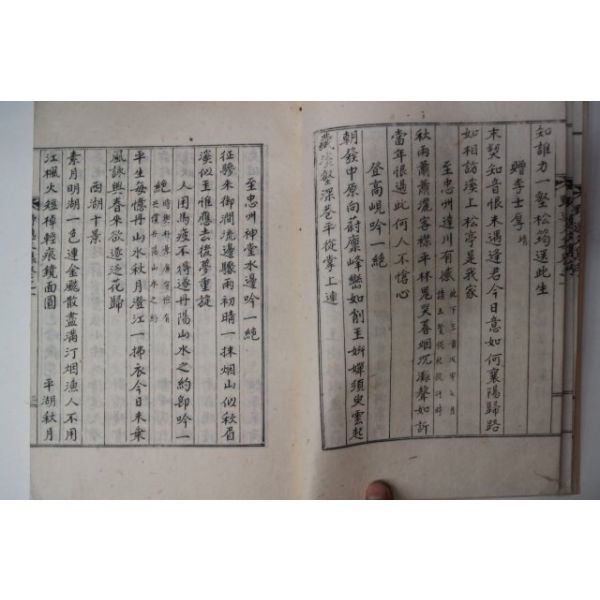 知誰力一壑松筠送此生
贈李士厚
末契知音恨未遇逢君今日意如何襄陽歸路
如相訪溪上松亭是我家
至忠州達川有感
秋雨蕭蕭灑客襟平林鬼哭暮烟沉灘聲如訴
當年恨過此何人不愴心
登高峴吟一絶
朝發中原向蔚廩峰巒如削玉娟嬋須臾雲起
藏深壑深巷平從掌上連
至忠州神堂水邊吟一絶
征驂來御澗流邊驟雨初晴一抹烟山似秋眉
溪似玉惟應去後夢重旋
人困馬疲不得遂丹陽山水之約却吟一
絶
平生每憶丹山水秋月澄江一拂衣今日未乘
風詠興春來欲逐泛花歸
西湖十景
素月明湖一色連金飈散盡滿汀烟漁人不用
江楓火短棹輕痕鏡面圓
平湖秋月